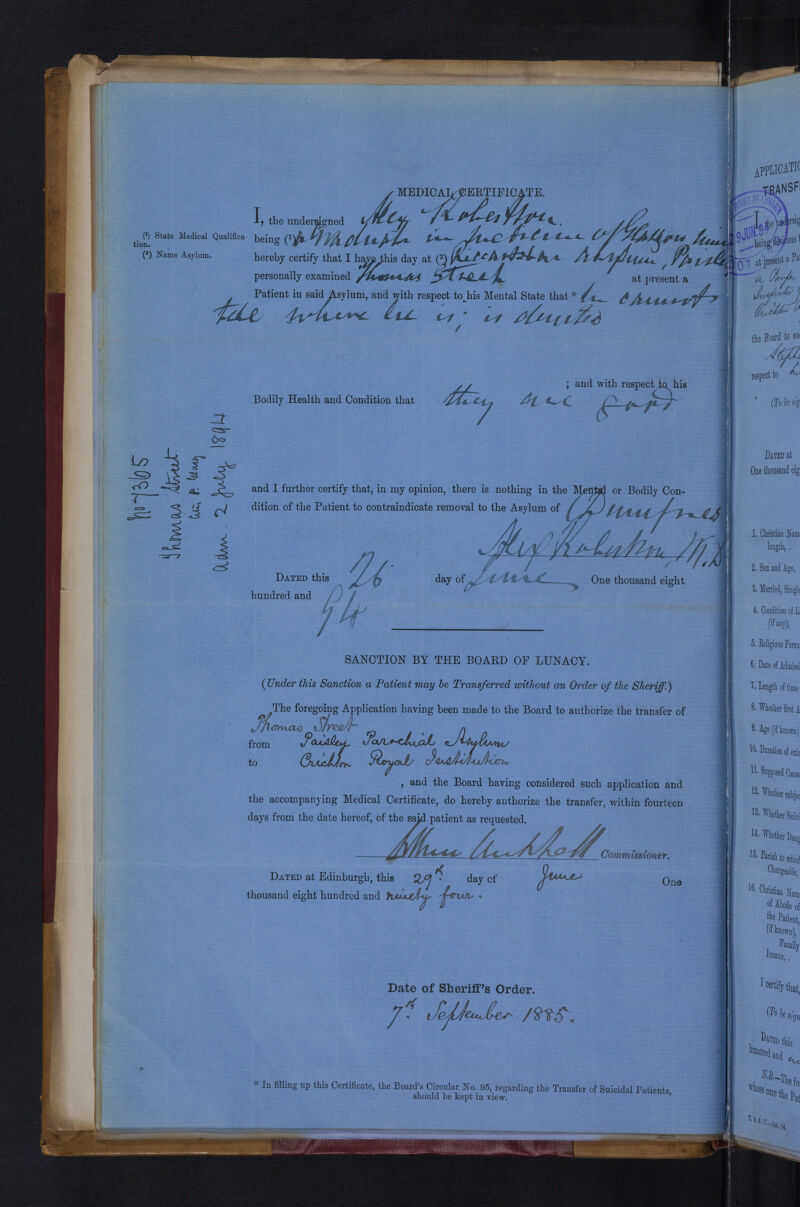 MEDICAL CERTIFICATE.
I, the undersigned Alex Robertson
(¹) State Medical Qualifica-
tion.
(²) Name Asylum.
being (¹) a Graduate in Medicine of Glasgow
hereby certify that I have this day at (²) Riccartsbar Asylum, Paisley
personally examined Thomas Street at present a
Patient in said Asylum, and with respect to his Mental State that * he cannot
tell where he is; is demented
; and with respect to his
Bodily Health and Condition that they are good
No 7365
Thomas Street
adm. 2 July 1894
and I further certify that, in my opinion, there is nothing in the Mental or Bodily Con-
dition of the Patient to contraindicate removal to the Asylum of Dumfries
Alex Robertson, M.D
DATED this 26 day of June One thousand eight
hundred and 94
SANCTION BY THE BOARD OF LUNACY.
(Under this Sanction a Patient may be Transferred without an Order of the Sheriff.)
The foregoing Application having been made to the Board to authorize the transfer of
Thomas Street
from Paisley Parochial Asylum
to Crichton Royal Institution
, and the Board having considered such application and
the accompanying Medical Certificate, do hereby authorize the transfer, within fourteen
days from the date hereof, of the said patient as requested.
Arthur Mitchell Commissioner.
DATED at Edinburgh, this 29th day of June One
thousand eight hundred and ninety four.
Date of Sheriff's Order.
7th September 1885.
* In filling up this Certificate, the Board's Circular No. 95, regarding the Transfer of Suicidal Patients,
should be kept in view.
APPLICATIO
TRANSF
I, the undersig
being
at present a Pa
the Board to su
respect to
(To be sig
DATED at
One thousand eig
1. Christian Nam
length, .
2. Sex and Age,
3. Married, Single
4. Condition of L
(if any),
5. Religious Persu
6. Date of Admissi
7. Length of time
8. Whether first A
9. Age (if known)
10. Duration of exis
11. Supposed Cause
12. Whether subjec
13. Whether Suici
14. Whether Dang
15. Parish to which
Chargeable,
16. Christian Nam
of Abode of
the Patient,
(if known),
Family
Insane, .
I certify that,
(To be sign
DATED this
hundred and
N.B.—The fo
whose care the Pat